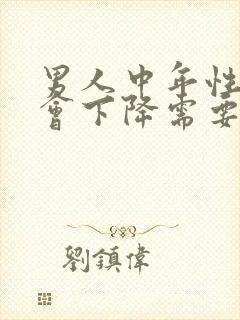 男人中年性
會下降需要
劉鎮偉